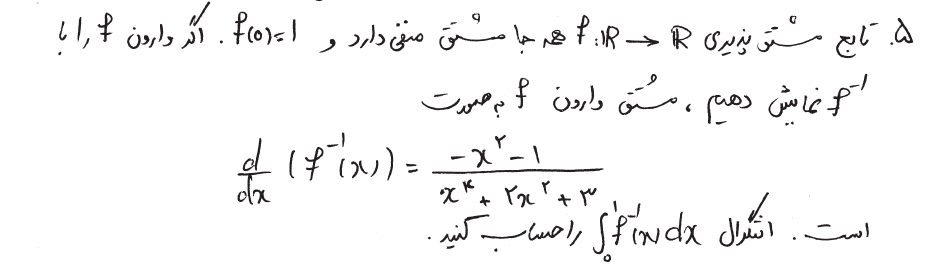 ۵. تابع مشتق پذیری f:ℝ → ℝ همه جا مشتق منفی دارد و f(0)=1. اگر وارون f را با
f⁻¹ نمایش دهیم، مشتق وارون f به صورت
d/dx (f⁻¹(x)) = (-x²-1)/(x⁴+2x²+3)
است. انتگرال ∫₀¹ f⁻¹(x) dx را حساب کنید.